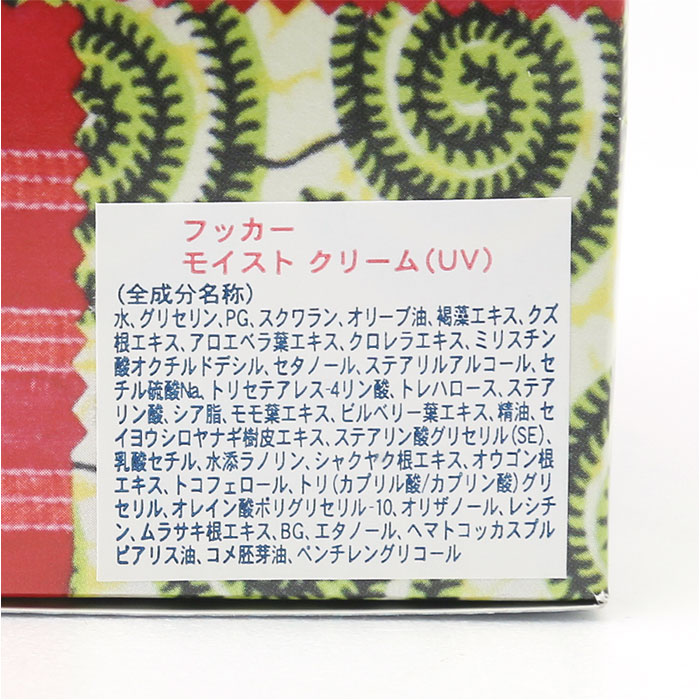 フッカー
モイスト クリーム(UV)
(全成分名称)
水、グリセリン、PG、スクワラン、オリーブ油、褐藻エキス、クズ
根エキス、アロエベラ葉エキス、クロレラエキス、ミリスチン
酸オクチルドデシル、セタノール、ステアリルアルコール、セ
チル硫酸Na、トリセテアレス-4リン酸、トレハロース、ステア
リン酸、シア脂、モモ葉エキス、ビルベリー葉エキス、精油、セ
イヨウシロヤナギ樹皮エキス、ステアリン酸グリセリル(SE)、
乳酸セチル、水添ラノリン、シャクヤク根エキス、オウゴン根
エキス、トコフェロール、トリ(カプリル酸/カプリン酸)グリ
セリル、オレイン酸ポリグリセリル-10、オリザノール、レシチ
ン、ムラサキ根エキス、BG、エタノール、ヘマトコッカスプル
ビアリス油、コメ胚芽油、ペンチレングリコール